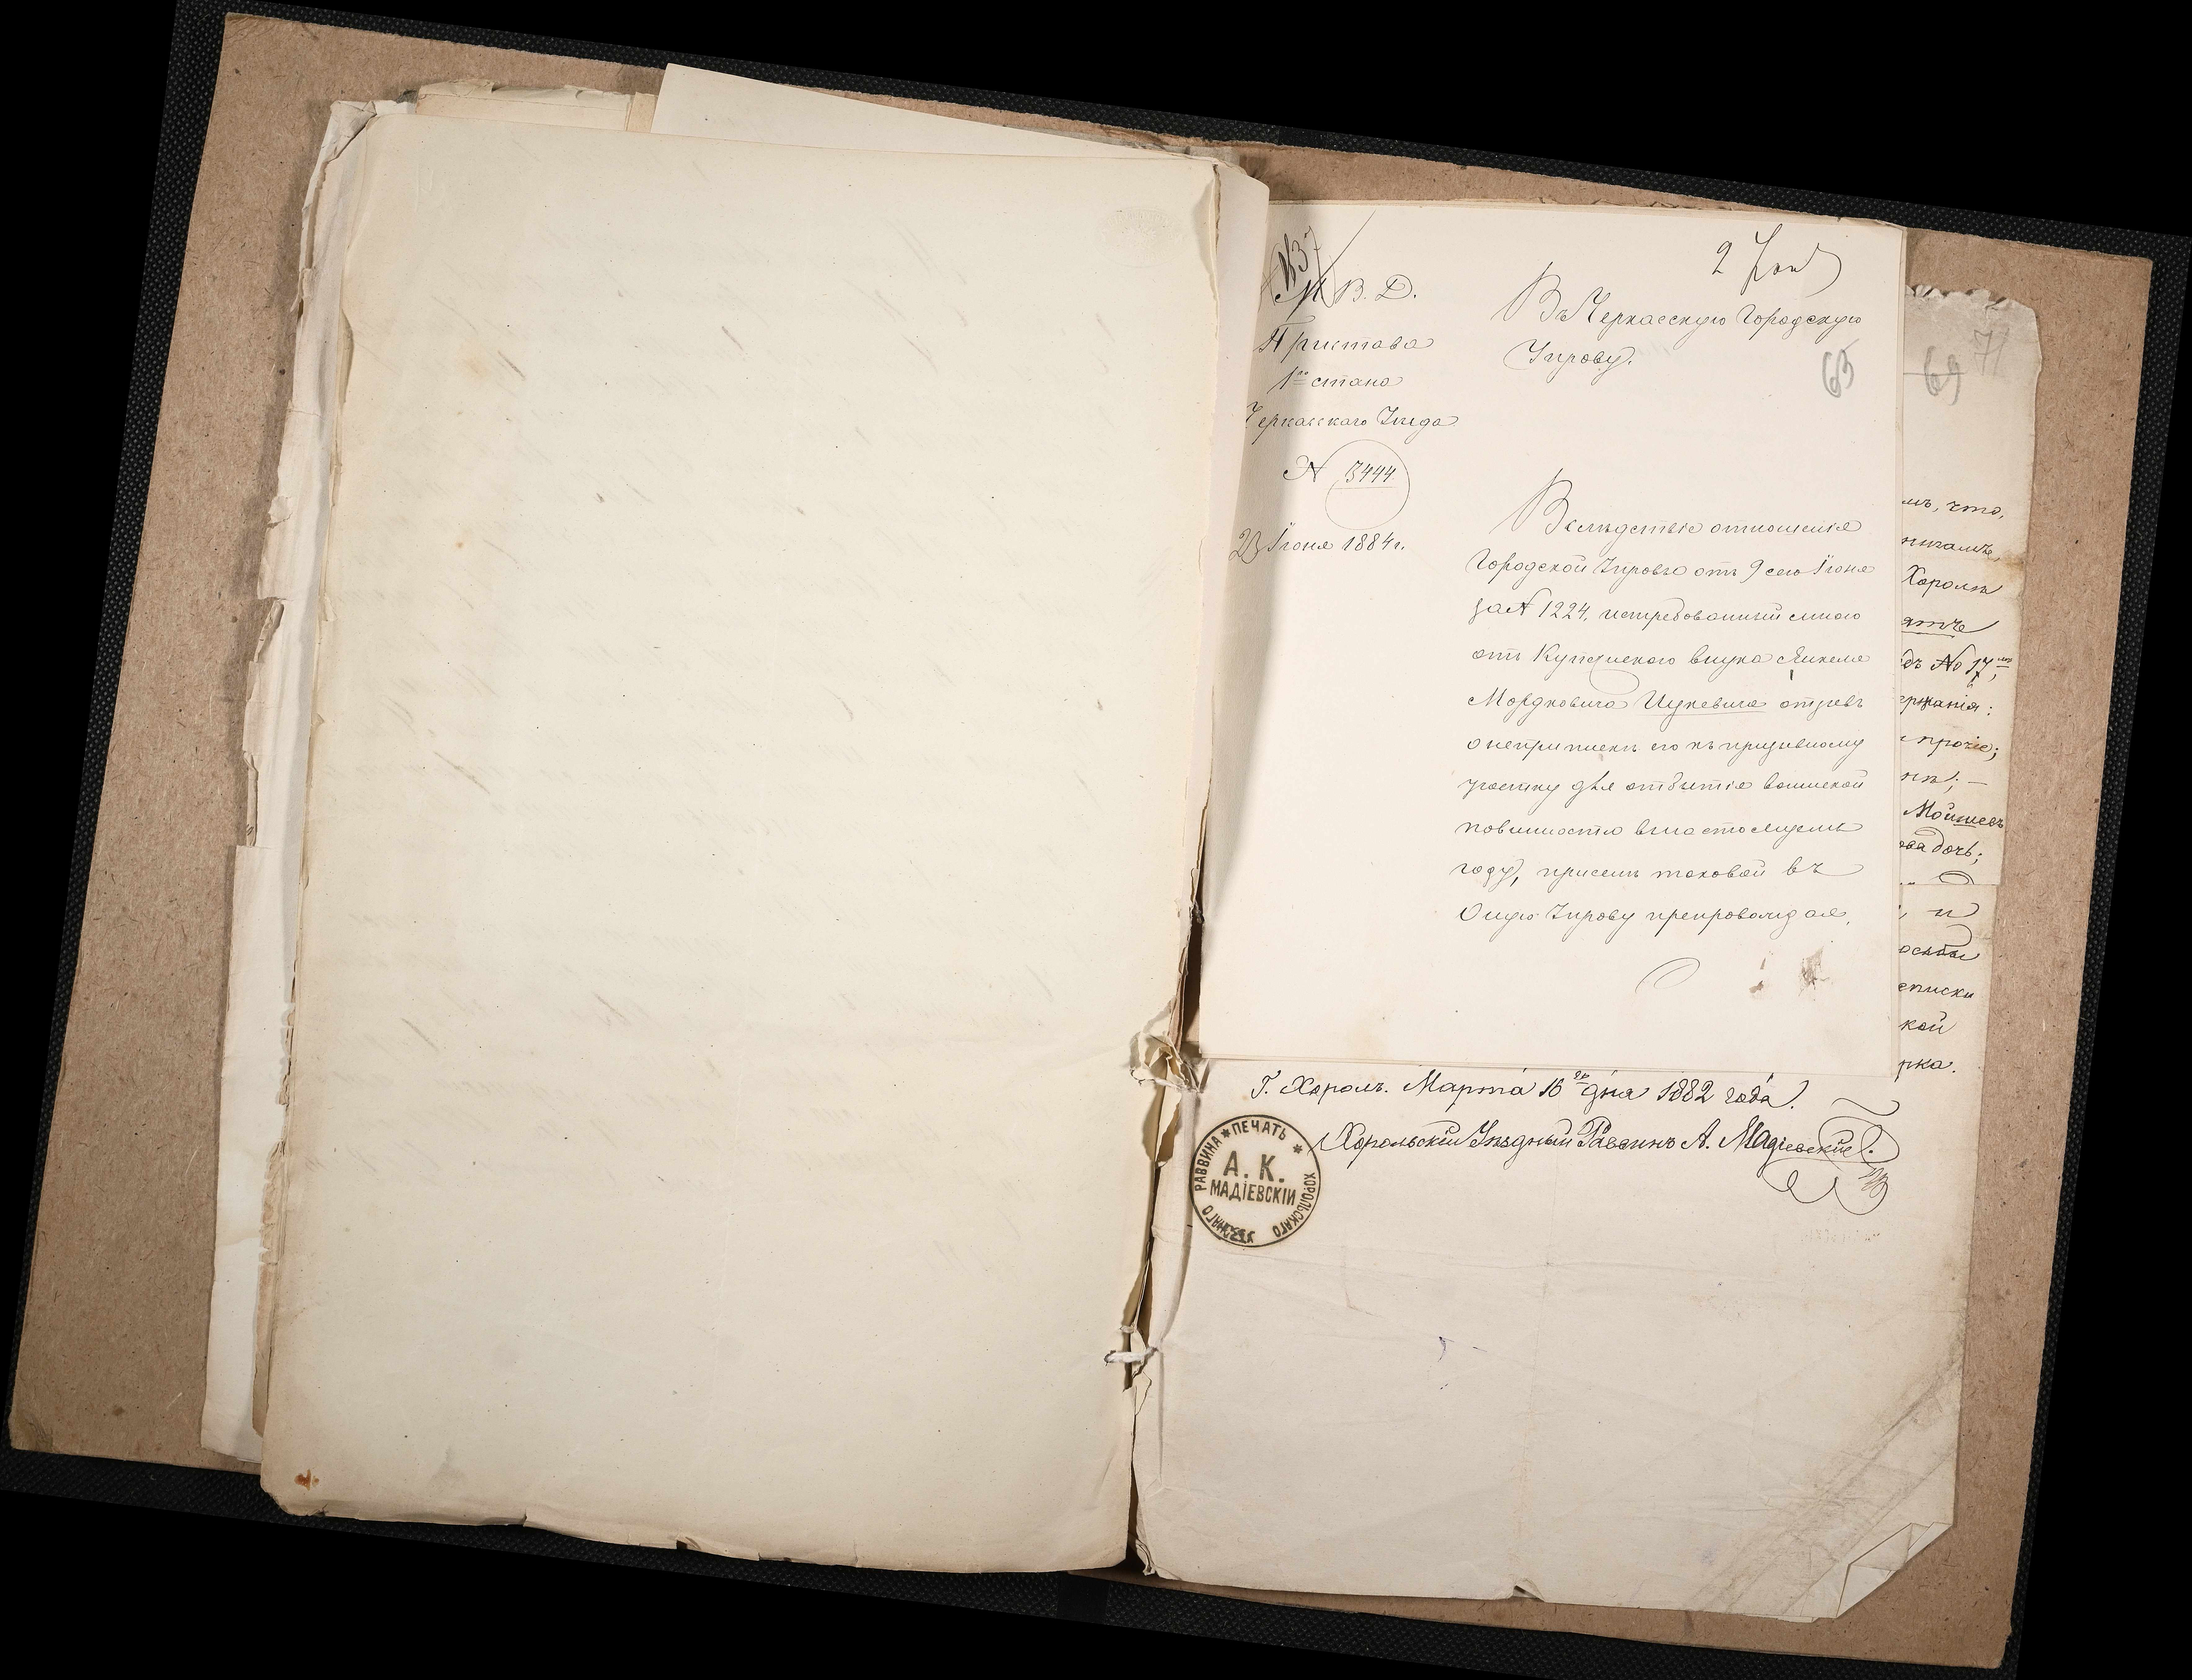 1137
М. В. Д.
Пристава
1го стана
Черкасскаго Уѣзда
N 3444
23 Іюня 1884 г.
2
Въ Черкасскую Городскую
Управу.
65
Вслѣдствіе отношенія
Городской Управы отъ 9 сего Іюня
за N 1224, истребованный мною
отъ Купеческаго внука Янкеля
Мордковича Ицкевича отзывъ
о неприпискѣ его къ призывному
участку для отбытія воинской
повинности въ настоящемъ
году, при семъ таковой въ
Оную Управу препровождая.
69 71
мъ, что,
нигамъ,
Хороль
дъ No 17,
ержанія:
прочіе;
Мойшевъ
ова дочь;
, и
осьбы
списки
кой
рка.
Г. Хороль. Марта 16го дня 1882 года.
Хорольскій Уѣздный Раввинъ А. Мадіевскій.
ПЕЧАТЬ ХОРОЛЬСКАГО УѢЗДНАГО РАВВИНА
А. К.
МАДІЕВСКІЙ